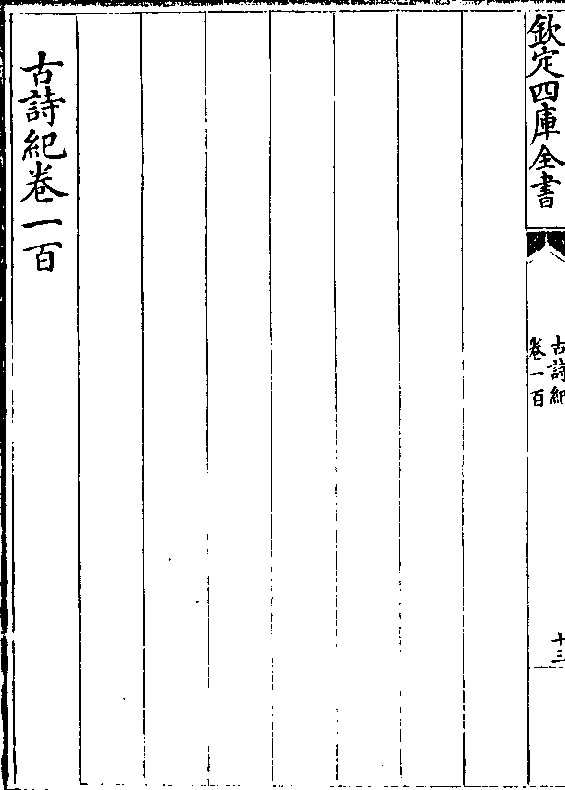 欽定四庫全書
古詩紀
卷一百
十三
古詩紀卷一百